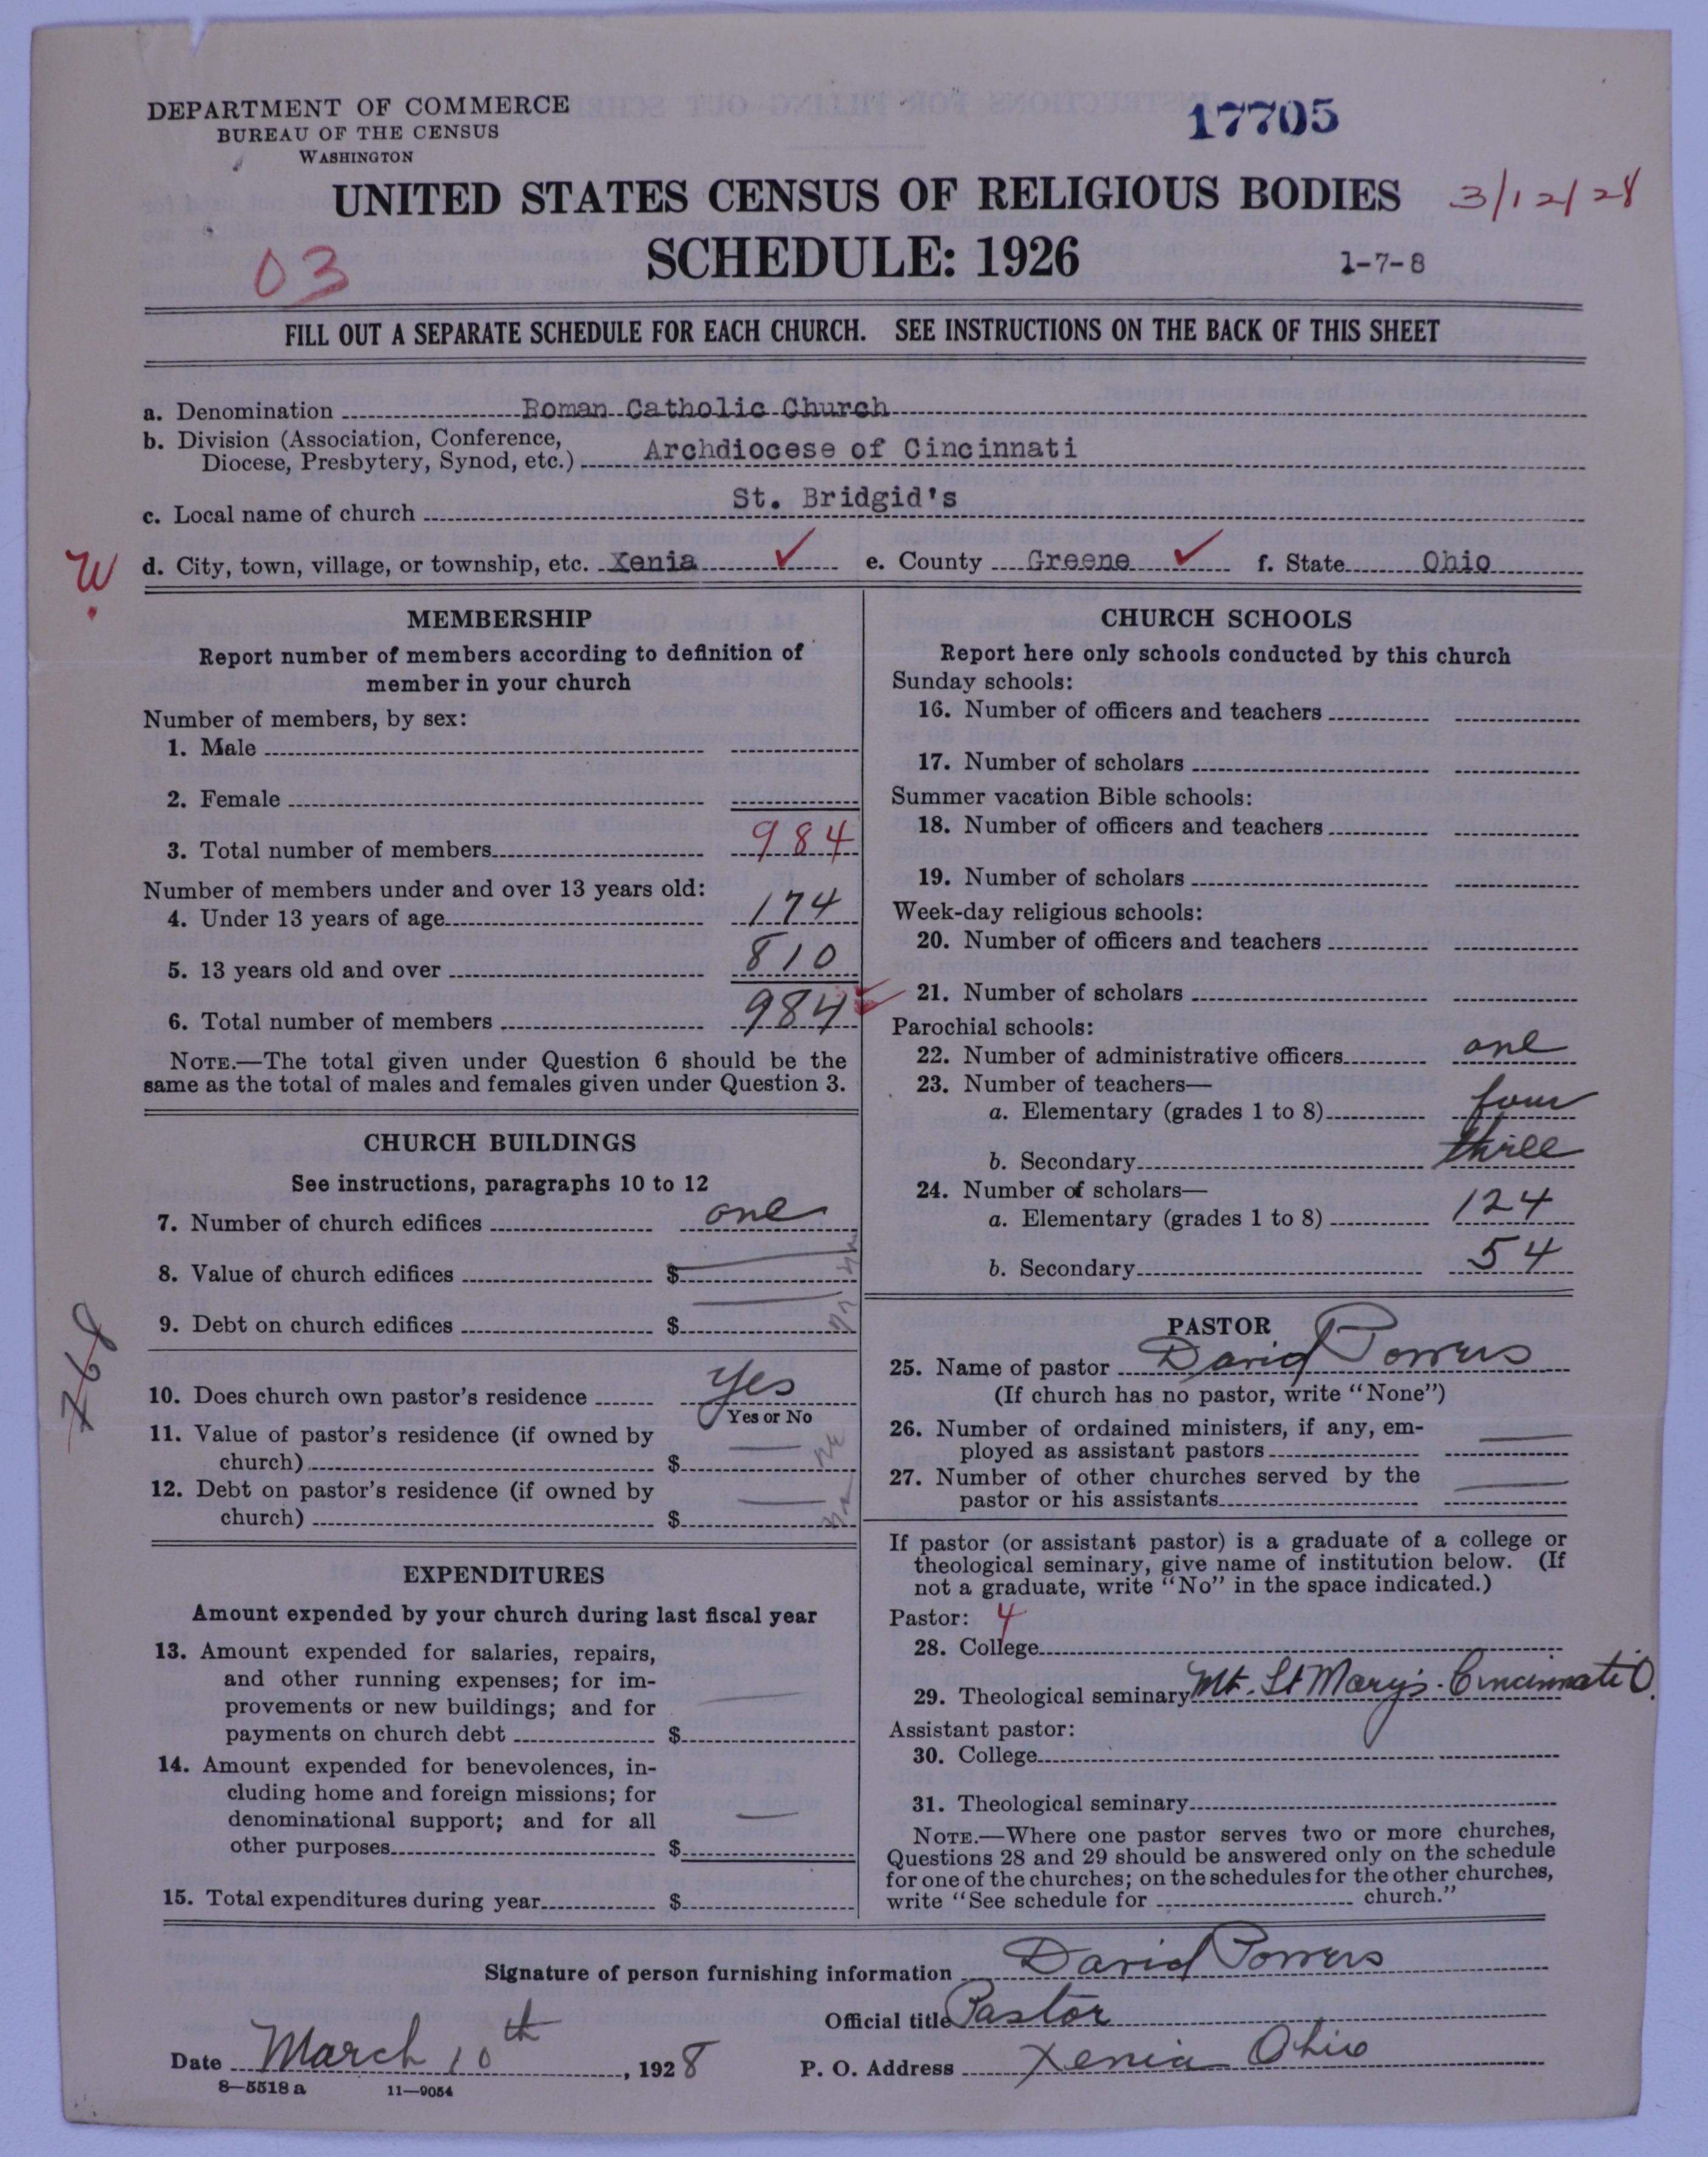 DEPARTMENT OF COMMERCE
BUREAU OF THE CENSUS
WASHINGTON
17705
UNITED STATES CENSUS OF RELIGIOUS BODIES
3/12/28
03
SCHEDULE: 1926
1-7-8
FILL OUT A SEPARATE SCHEDULE FOR EACH CHURCH. SEE INSTRUCTIONS ON THE BACK OF THIS SHEET
a. Denomination Roman Catholic Church
b. Division (Association, Conference,
Diocese, Presbytery, Synod, etc.) Archdiocese of Cincinnati
c. Local name of church St. Bridgid's
W
d. City, town, village, or township, etc. Xenia e. County Greene f. State Ohio
MEMBERSHIP
Report number of members according to definition of
member in your church
Number of members, by sex:
1. Male
2. Female
3. Total number of members 984
Number of members under and over 13 years old:
4. Under 13 years of age 174
5. 13 years old and over 810
6. Total number of members 984
NOTE.—The total given under Question 6 should be the
same as the total of males and females given under Question 3.
CHURCH BUILDINGS
See instructions, paragraphs 10 to 12
7. Number of church edifices one
8. Value of church edifices $
9. Debt on church edifices $
768
10. Does church own pastor's residence Yes
Yes or No
11. Value of pastor's residence (if owned by
church) $
12. Debt on pastor's residence (if owned by
church) $
EXPENDITURES
Amount expended by your church during last fiscal year
13. Amount expended for salaries, repairs,
and other running expenses; for im-
provements or new buildings; and for
payments on church debt $
14. Amount expended for benevolences, in-
cluding home and foreign missions; for
denominational support; and for all
other purposes $
15. Total expenditures during year $
CHURCH SCHOOLS
Report here only schools conducted by this church
Sunday schools:
16. Number of officers and teachers
17. Number of scholars
Summer vacation Bible schools:
18. Number of officers and teachers
19. Number of scholars
Week-day religious schools:
20. Number of officers and teachers
21. Number of scholars
Parochial schools:
22. Number of administrative officers one
23. Number of teachers—
a. Elementary (grades 1 to 8) four
b. Secondary three
24. Number of scholars—
a. Elementary (grades 1 to 8) 124
b. Secondary 54
PASTOR
25. Name of pastor David Powers
(If church has no pastor, write "None")
26. Number of ordained ministers, if any, em-
ployed as assistant pastors
27. Number of other churches served by the
pastor or his assistants
If pastor (or assistant pastor) is a graduate of a college or
theological seminary, give name of institution below. (If
not a graduate, write "No" in the space indicated.)
Pastor: 4
28. College
29. Theological seminary Mt. St Mary's. Cincinnati O.
Assistant pastor:
30. College
31. Theological seminary
NOTE.—Where one pastor serves two or more churches,
Questions 28 and 29 should be answered only on the schedule
for one of the churches; on the schedules for the other churches,
write "See schedule for church."
Signature of person furnishing information David Powers
Official title Pastor
Date March 10th, 1928 P. O. Address Xenia Ohio
8—5518 a 11—9054